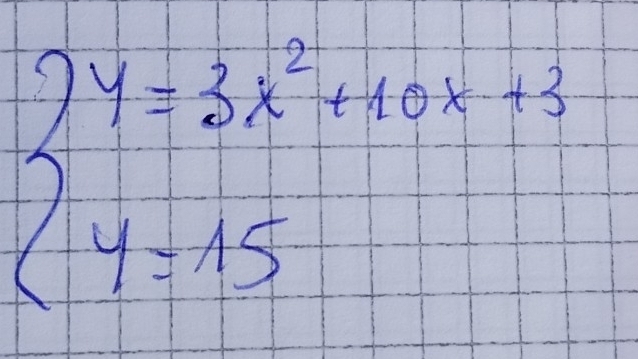 y = 3x² + 10x + 3
y = 15